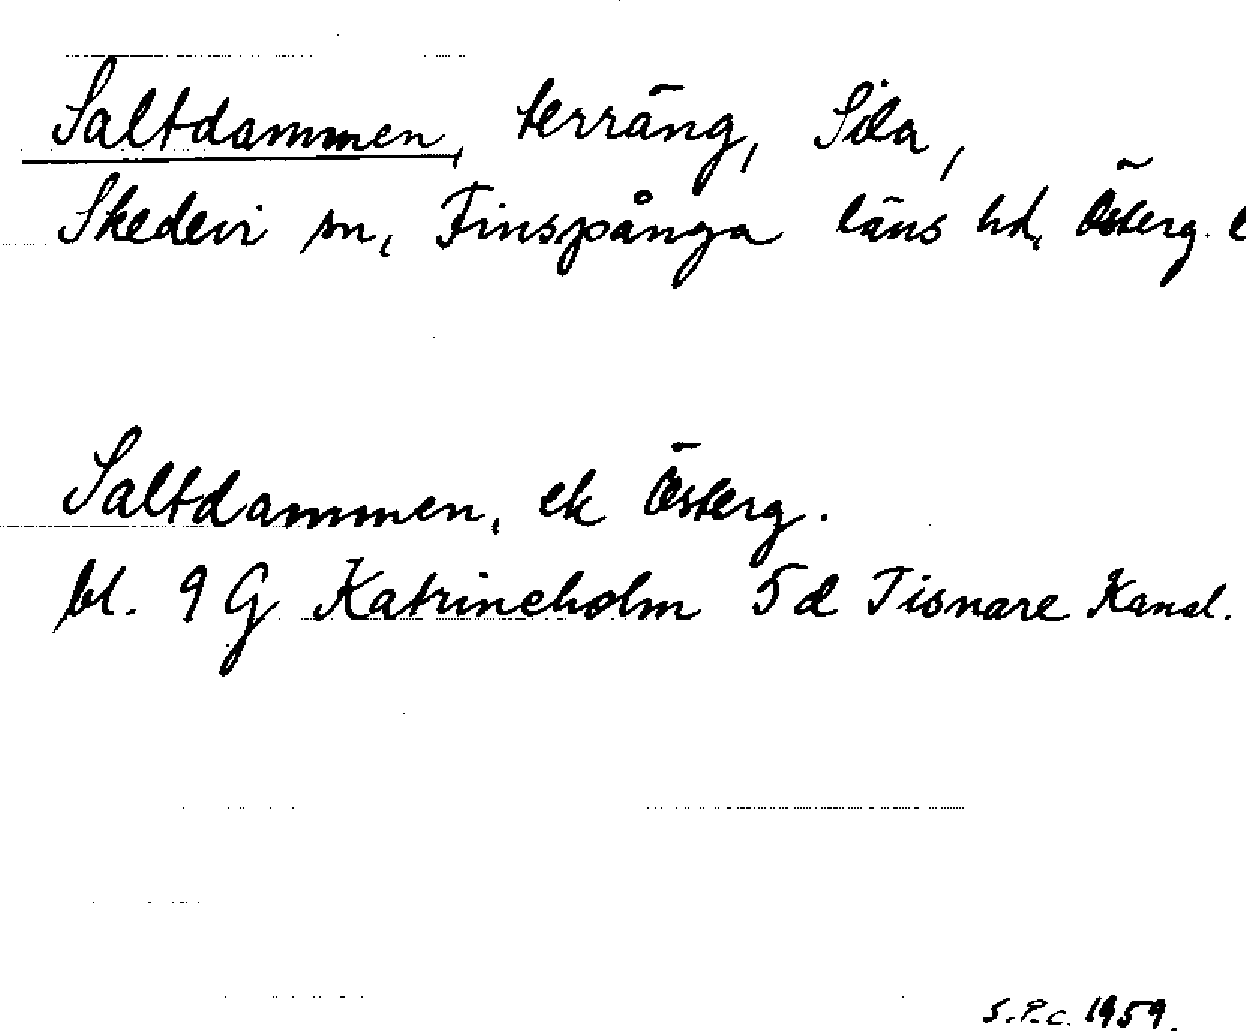 Saltdammen, terräng, Sila,
Skedevi sn, Finspånga läns hd, Österg. l
Saltdammen, ek Österg.
bl. 9 G Katrineholm 5 d Tisnare Kanal.
S.P.C. 1959.